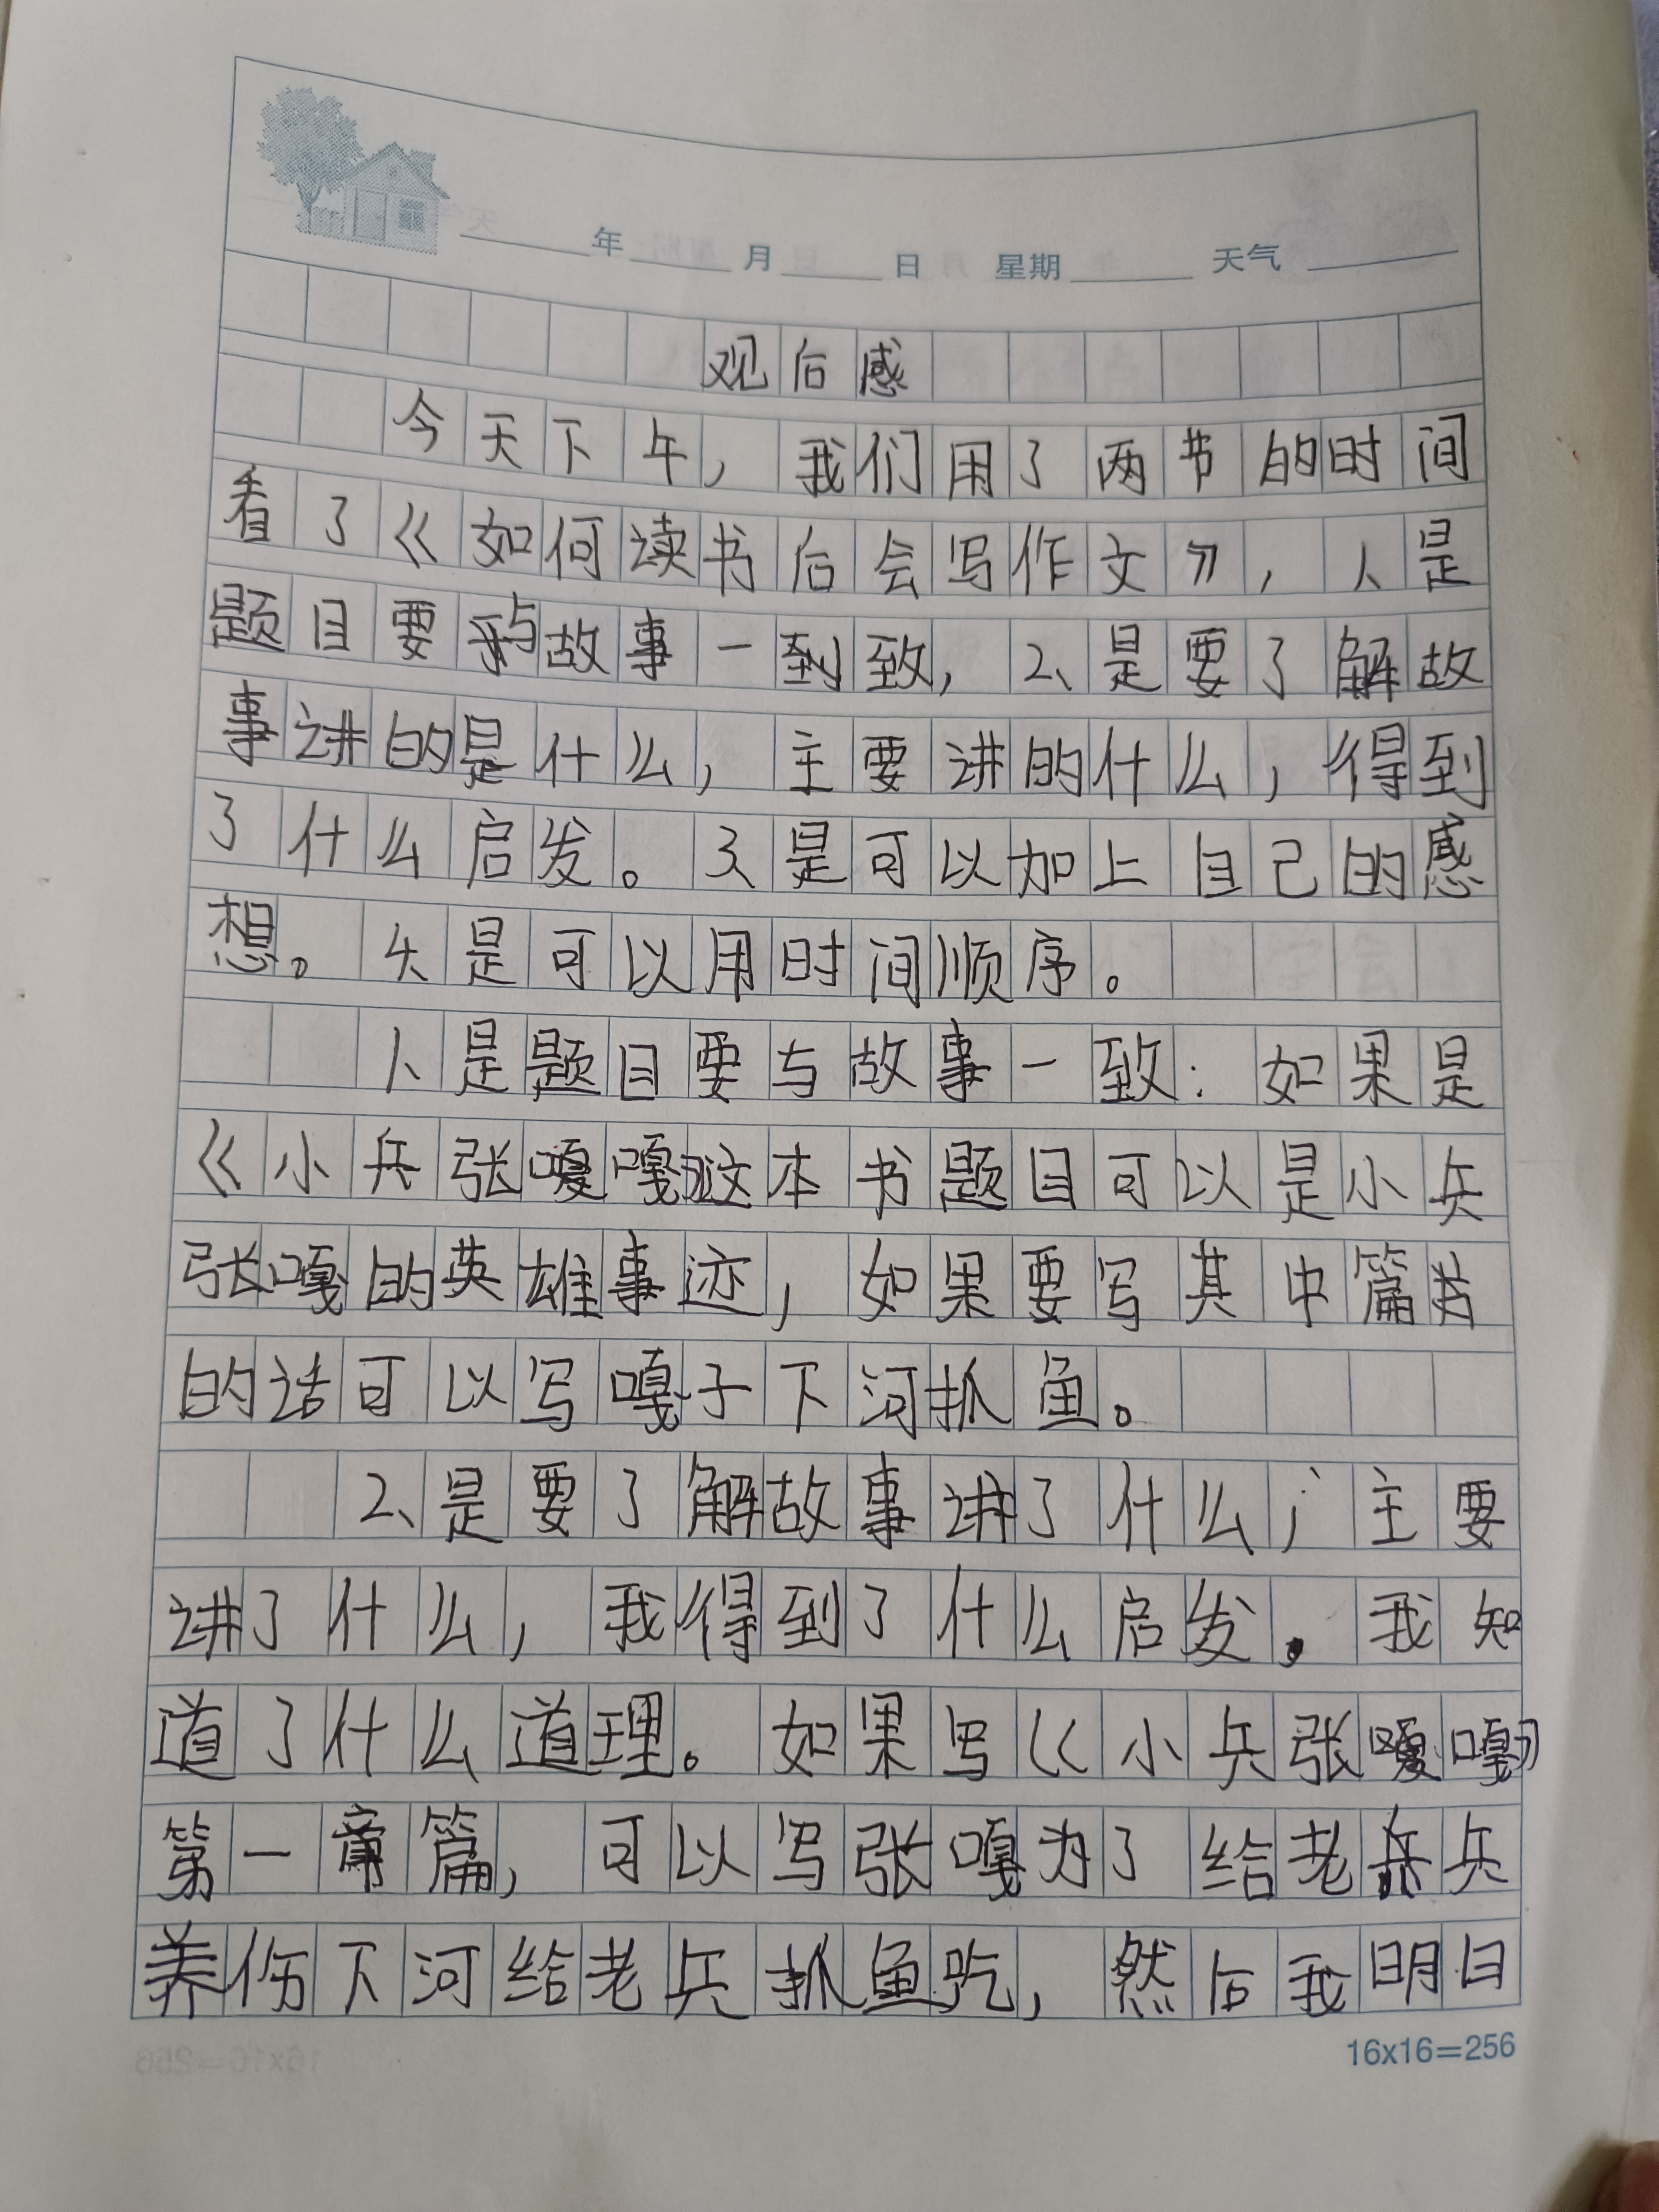 年 月 日 星期 天气
观后感
今天下午，我们用了两节的时间
看了《如何读书后会写作文》，1、是
题目要与故事一到致，2、是要了解故
事讲的是什么，主要讲的什么，得到
了什么启发。3、是可以加上自己的感
想。4、是可以用时间顺序。
1、是题目要与故事一致：如果是
《小兵张嘎嘎》这本书题目可以是小兵
张嘎的英雄事迹，如果要写其中篇
的话可以写嘎子下河抓鱼。
2、是要了解故事讲了什么；主要
讲了什么，我得到了什么启发。我知
道了什么道理。如果写《小兵张嘎嘎》
第一章篇，可以写张嘎为了给老兵兵
养伤下河给老兵抓鱼吃，然后我明白
16x16=256